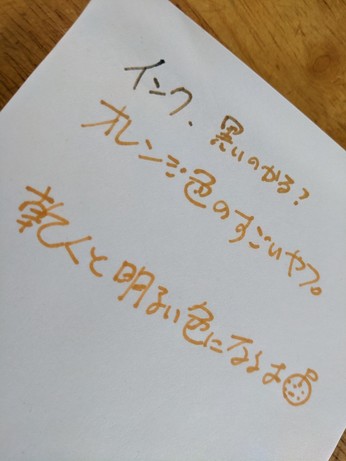 インク、黒いの?
オレンジ色のすごいやつ。
乾くと明るい色になるよ